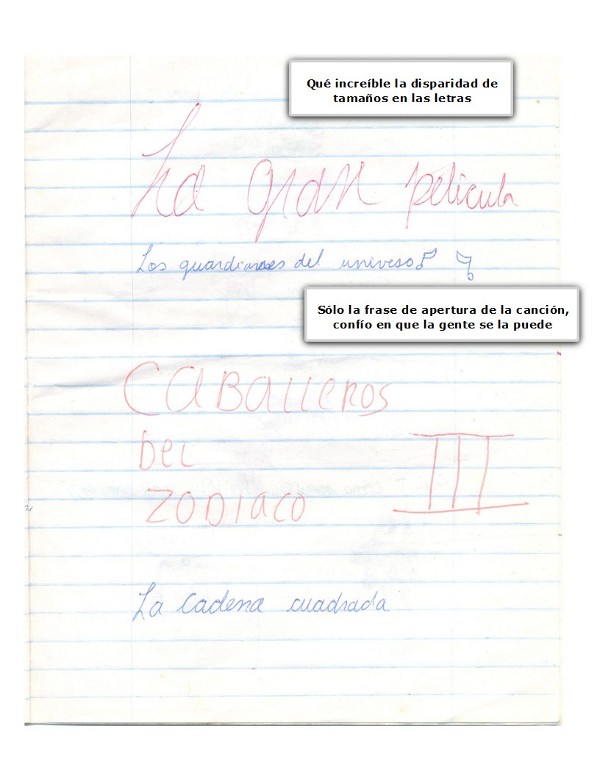 Qué increíble la disparidad de
tamaños en las letras
La gran pelicula
Los guardianoes del univeso
Sólo la frase de apertura de la canción,
confío en que la gente se la puede
CABALLEROS
DEL
ZODIACO
III
La Cadena cuadrada